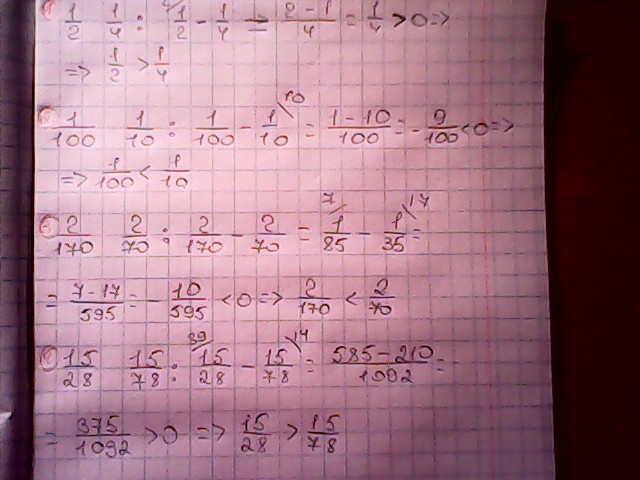 1) 1/2 1/4 : 1/2 - 1/4 = (2-1)/4 = 1/4 > 0 =>
=> 1/2 > 1/4
1/100 1/10 : 1/100 - 1/10 \10 = (1-10)/100 = - 9/100 < 0 =>
=> 1/100 < 1/10
2/170 2/70 : 2/170 - 2/70 = 7/ 1/85 - 1/35 \17 =
= (7-17)/595 = - 10/595 < 0 => 2/170 < 2/70
15/28 15/78 : 39/ 15/28 - 15/78 \14 = (585-210)/1092 =
= 375/1092 > 0 => 15/28 > 15/78